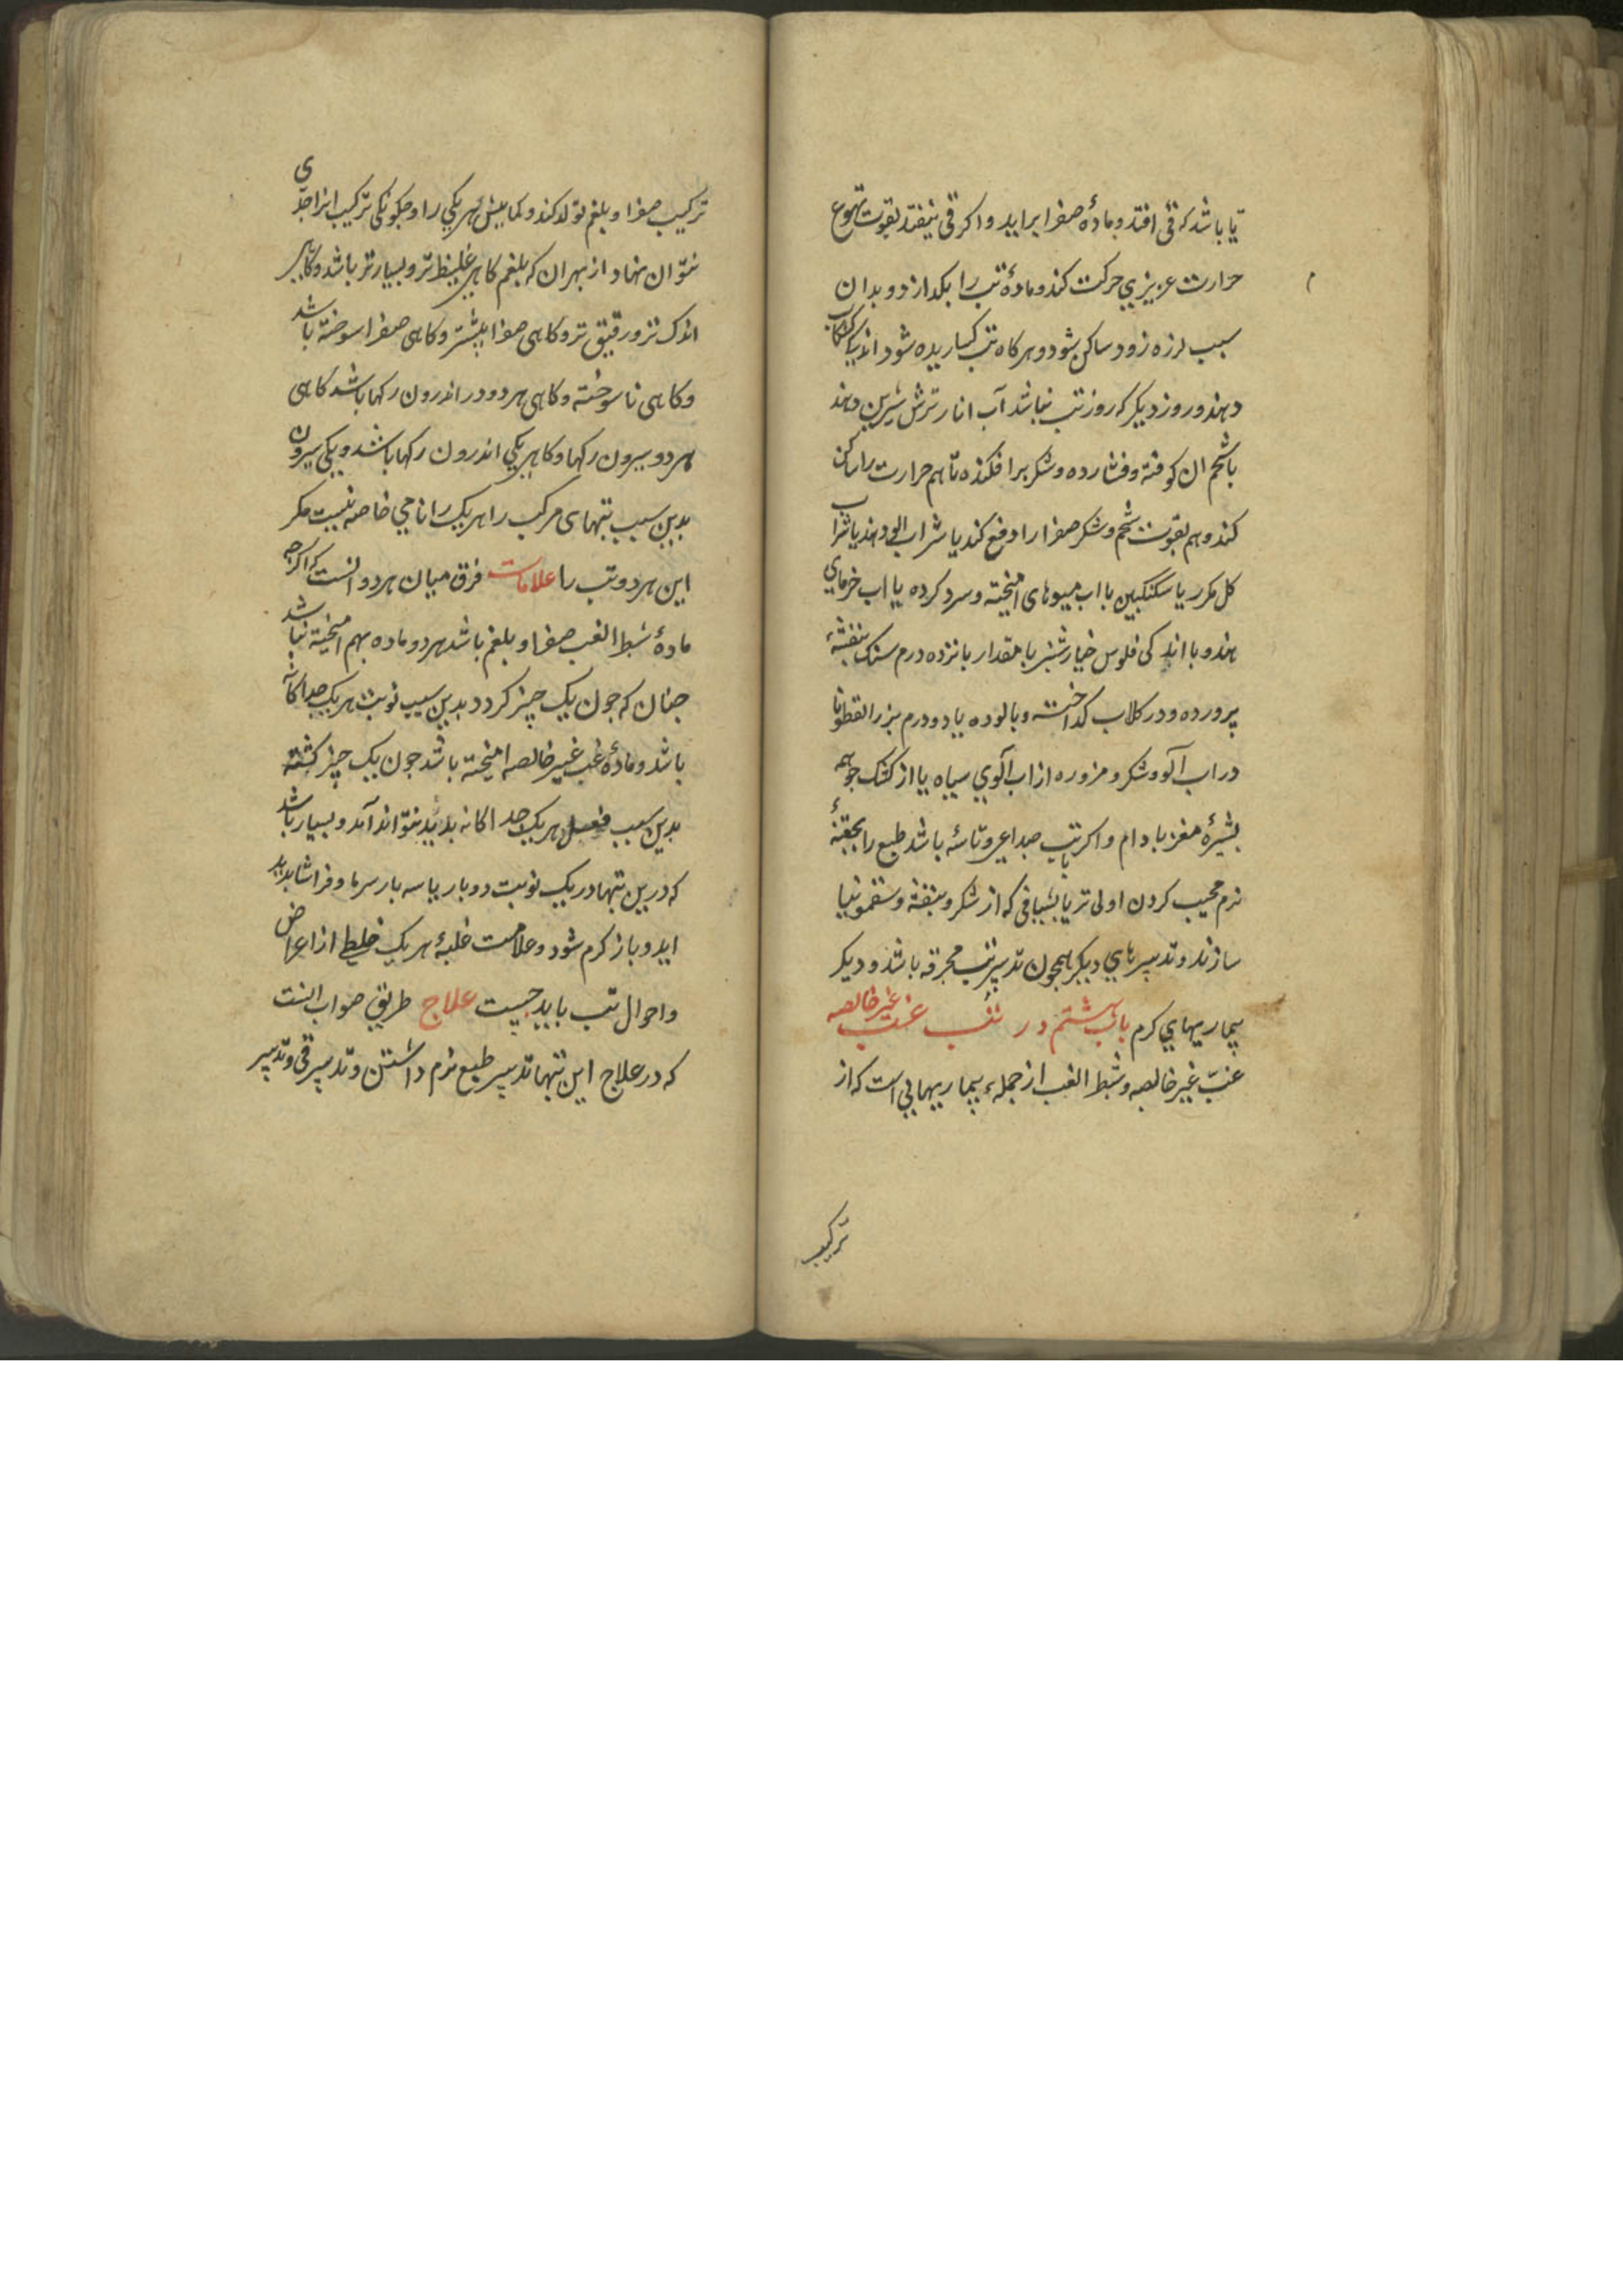 تا باشد که قی افتد و مادهٔ صفرا براید و اکر قی نیفتد بقوت تهوع
حرارت عزیزی حرکت کند و مادهٔ تب را بکدازد و بدان
سبب لرزه زود ساکن شود و هرکاه تب کساریده شود اندکی کشکاب
دهند و روز دیکر که روز تب نباشد آب انار ترش شیرین دهند
با شحم ان کوفته و فشارده و شکر برافکنده تا هم حرارت را ساکن
کند و هم بقوت شحم و شکر صفرا را دفع کند یا شراب الو دهند یا شراب
کل مکرر یا سکنکبین با اب میوهای امیخته و سرد کرده یا اب خرمای
هندو با اندکی فلوس خیارشنبر با مقدار بانزده درم سنک بنفشهٔ
پرورده و در کلاب کداخته و بالوده یا دو درم بزرالقطونا
در اب آلو و شکر و مزوره از اب آلوی سیاه یا از کشک جو همه
بشیرهٔ مغز بادام و اکر تب با صداعی و تاسهٔ باشد طبع را بحقنهٔ
نرم مجیب کردن اولی تر یا بشیافی که از شکر و بنفشه و سقمونیا
سازند و تدبیرهای دیکر همچون تدبیر تب محرقه باشد و دیکر
بیماریهای کرم باب هشتم در تب غب غیر خالصه
غب غیر خالصه و شطر الغب از جملهٔ بیماریهایی است که از
ترکیب
ترکیب صفرا و بلغم تولد کند و کمابیش هریکی را و چکونکی ترکیب انرا حدی
نتوان نهاد از بهر ان که بلغم کاهی غلیظ تر و بسیارتر باشد و کاهی
اندک تر و رقیق تر و کاهی صفرا بیشتر و کاهی صفرا سوخته باشد
و کاهی ناسوخته و کاهی هردو در اندرون رکها باشد کاهی
هردو بیرون رکها و کاهی یکی اندرون رکها باشد و یکی بیرون
بدین سبب تبهای مرکب را هریک را نامی خاصه نیست مکر
این هردو تب را علامات فرق میان هردو انست که اکرچه
مادهٔ شطر الغب صفرا و بلغم باشد هردو ماده بهم امیخته نباشد
جنان که جون یک چیز کردد بدین سبب نوبت هریک جداکانه
باشد و مادهٔ غب غیر خالصه امیخته باشد جون یک چیز کشته
بدین سبب فعل هریک جداکانه بدید نتواند آمد و بسیار باشد
که درین تبها در یک نوبت دو بار یا سه بار سرما و فراشا بدید
اید و باز کرم شود و علامت غلبهٔ هریک خلط از اعراض
و احوال تب باید جست علاج طریق صواب انست
که در علاج این تبها تدبیر طبع نرم داشتن و تدبیر قی و تدبیر